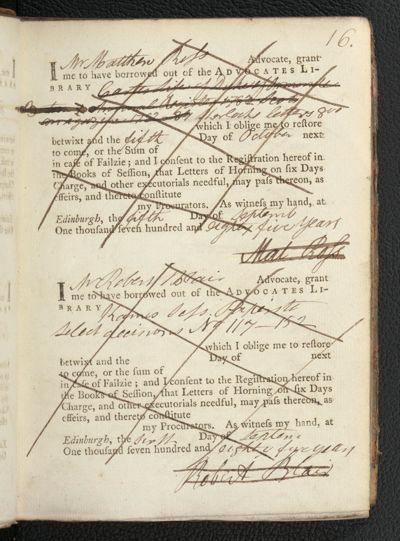 16.
I Mr Matthew Ross Advocate, grant
me to have borrowed out of the ADVOCATES LI-
BRARY
letters 8vo
which I oblige me to restore
betwixt and the fifth Day of October next
to come, or the Sum of
in case of Failzie; and I consent to the Registration hereof in
the Books of Session, that Letters of Horning on six Days
Charge, and other executorials needful, may pass thereon, as
effeirs, and thereto constitute
my Procurators. As witness my hand, at
Edinburgh, the fifth Day of Septemb
One thousand seven hundred and eighty five years
Mat. Ross
I Mr Robert Blair Advocate, grant
me to have borrowed out of the ADVOCATES LI-
BRARY Kames
Select decisions No 117-152
which I oblige me to restore
betwixt and the Day of next
to come, or the sum of
in case of Failzie; and I consent to the Registration hereof in
the Books of Session, that Letters of Horning on six Days
Charge, and other executorials needful, may pass thereon, as
effeirs, and thereto constitute
my Procurators. As witness my hand, at
Edinburgh, the Day of Septem
One thousand seven hundred and eighty five years
Robert Blair